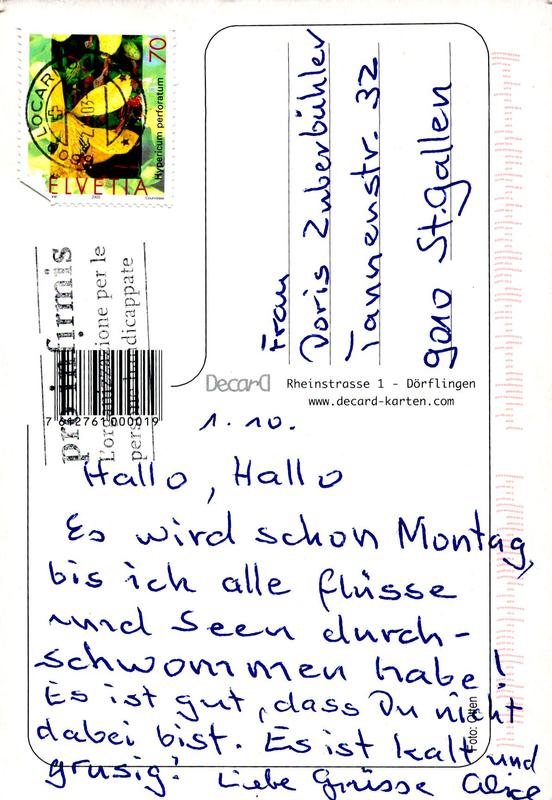 70
Hypericum perforatum
HELVETIA
2003
LOCAR
pro infirmis
L'organizzazione per le
persone handicappate
7 642761 000019
Frau
Doris Zuberbühler
Tannenstr. 32
9010 St.Gallen
Decard Rheinstrasse 1 - Dörflingen
www.decard-karten.com
1.10.
Hallo, Hallo
Es wird schon Montag,
bis ich alle flüsse
und Seen durch-
schwommen habe!
Es ist gut, dass Du nicht
dabei bist. Es ist kalt und
grusig! Liebe Grüsse Alice
Foto: Otten